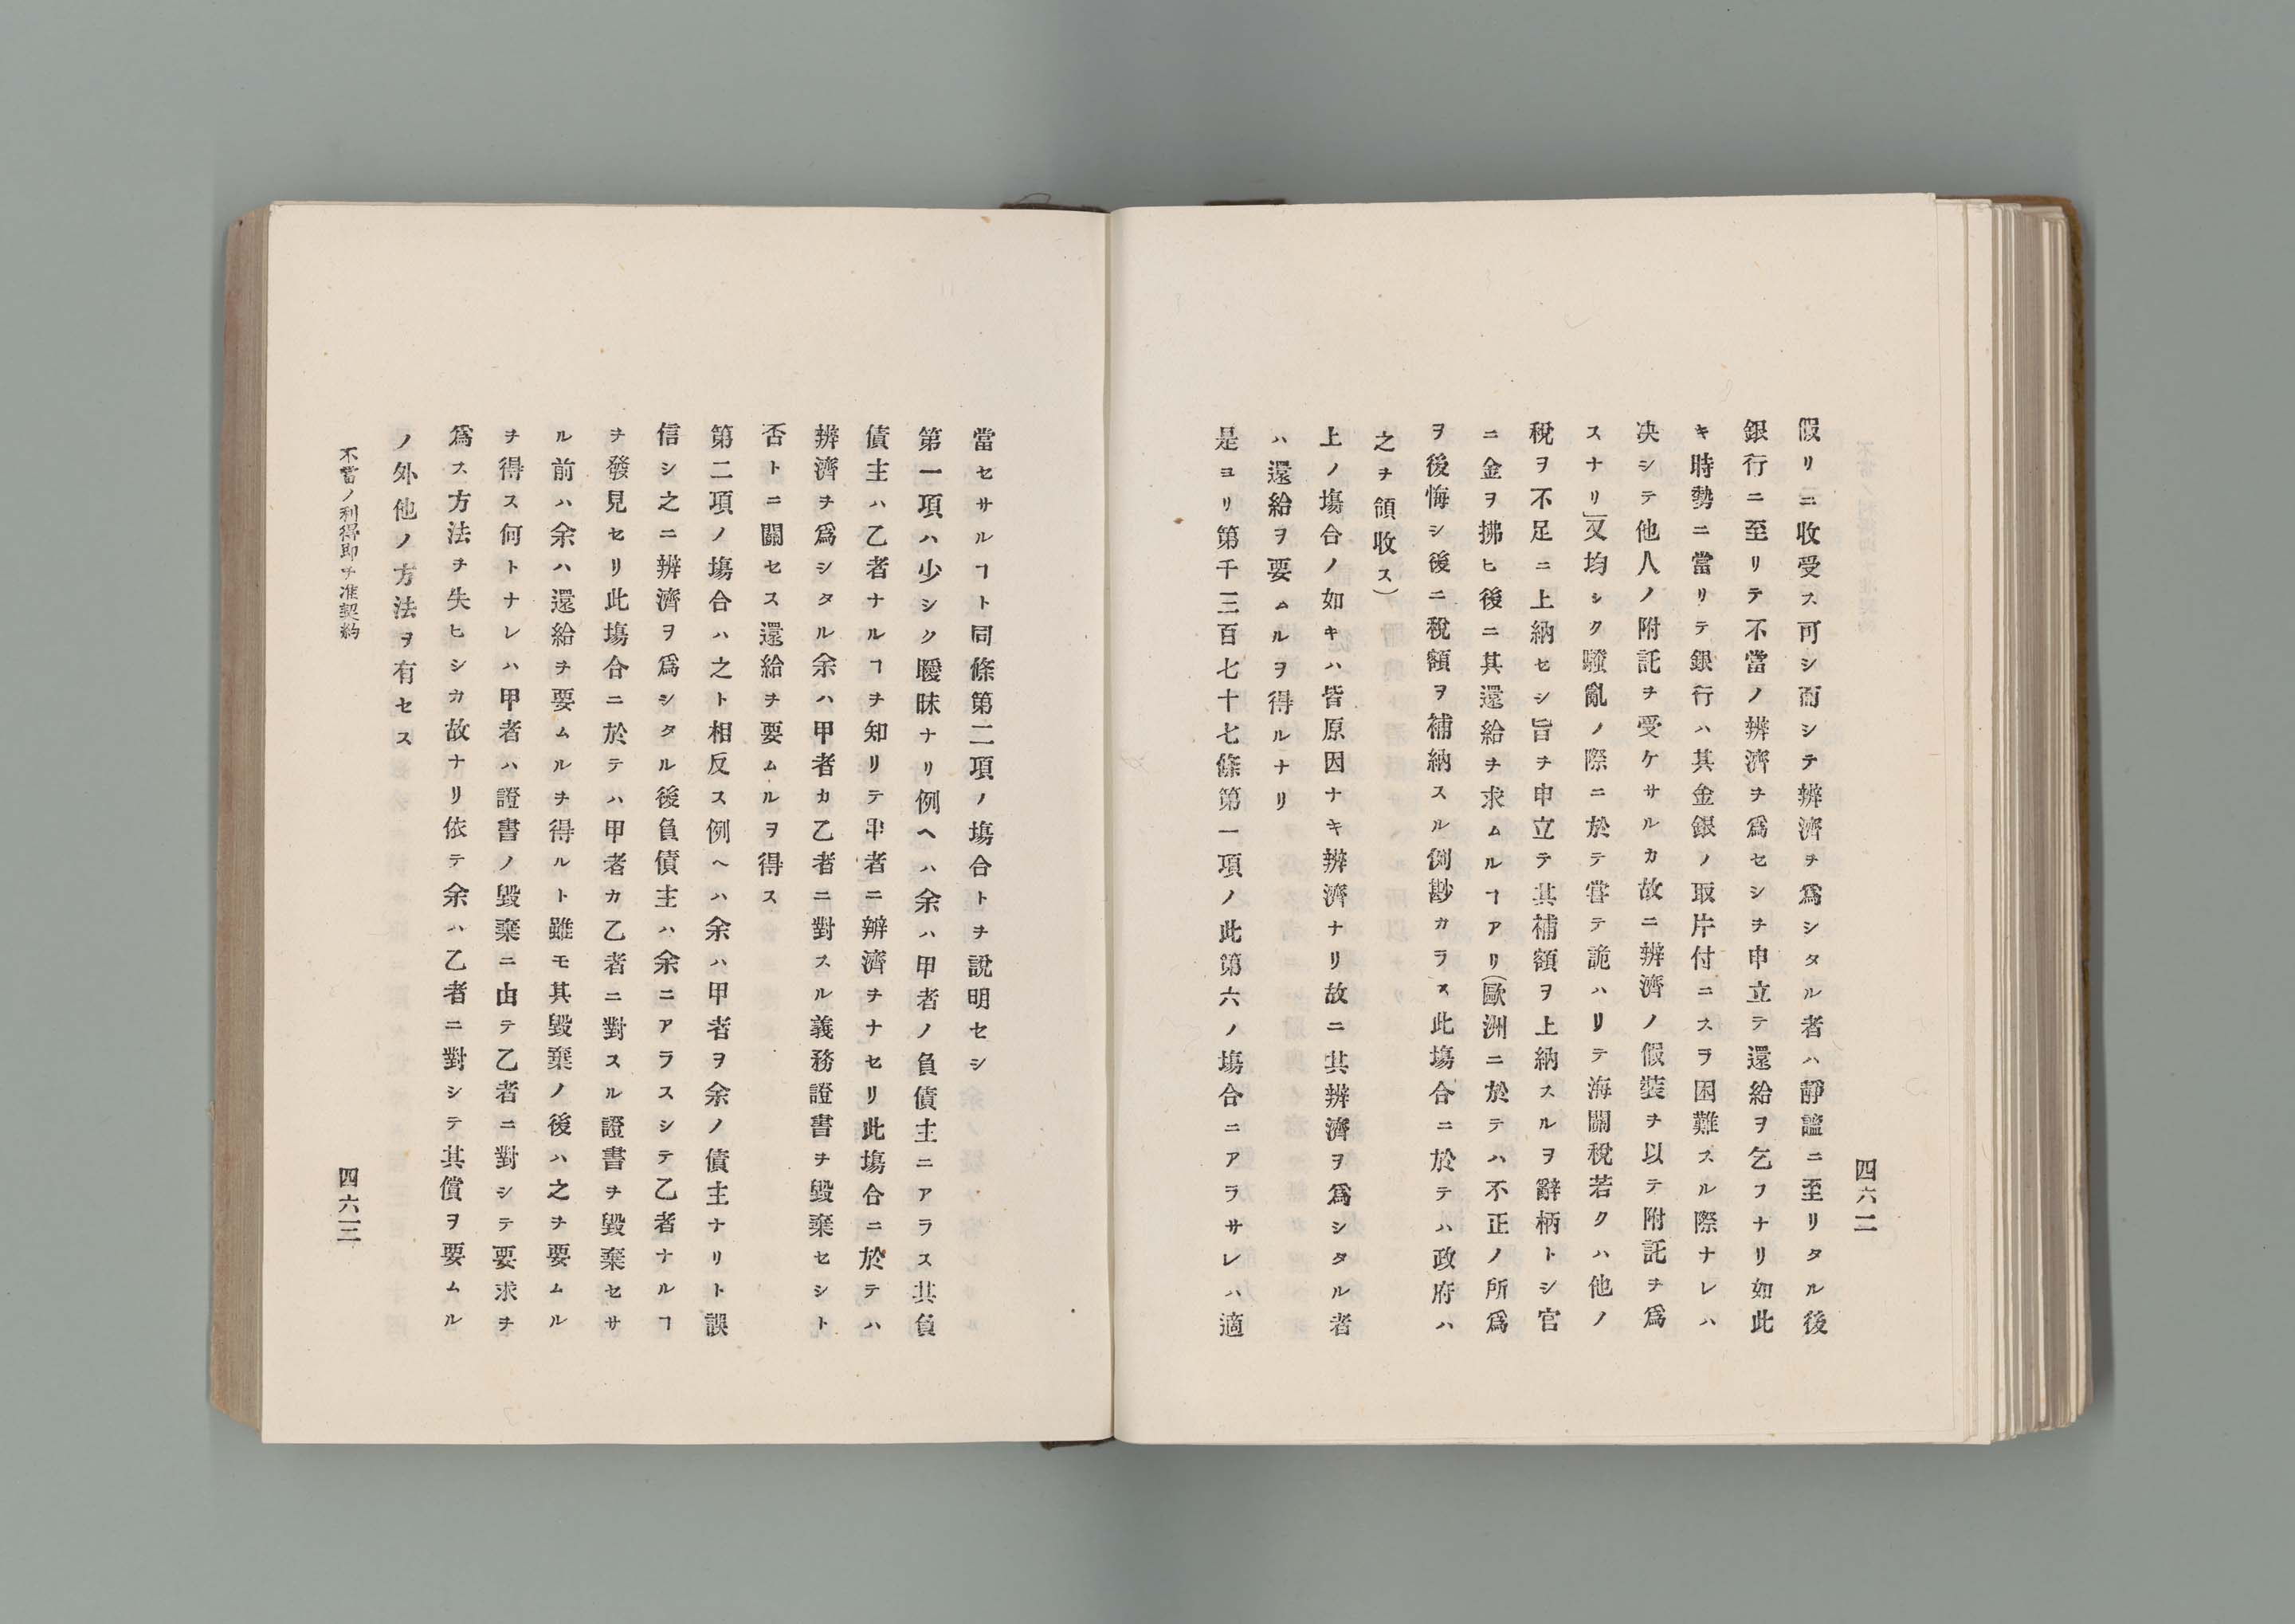 四六二
假リニ收受ス可シ而シテ辨濟ヲ爲シタル者ハ靜謐ニ至リタル後
銀行ニ至リテ不當ノ辨濟ヲ爲セシヲ申立テ還給ヲ乞フナリ如此
キ時勢ニ當リテ銀行ハ其金銀ノ取片付ニスヲ困難スル際ナレハ
决シテ他人ノ附託ヲ受ケサルカ故ニ辨濟ノ假裝ヲ以テ附託ヲ爲
スナリ」又均シク騷亂ノ際ニ於テ嘗テ詭ハリテ海關稅若クハ他ノ
稅ヲ不足ニ上納セシ旨ヲ申立テ其補額ヲ上納スルヲ辭柄トシ官
ニ金ヲ拂ヒ後ニ其還給ヲ求ムルヿアリ(歐洲ニ於テハ不正ノ所爲
ヲ後悔シ後ニ稅額ヲ補納スル例尠カラス此塲合ニ於テハ政府ハ
之ヲ領收ス)
上ノ塲合ノ如キハ皆原因ナキ辨濟ナリ故ニ其辨濟ヲ爲シタル者
ハ還給ヲ要ムルヲ得ルナリ
是ヨリ第千三百七十七條第一項ノ此第六ノ塲合ニアラサレハ適
當セサルヿト同條第二項ノ塲合トヲ說明セシ
第一項ハ少シク曖昧ナリ例ヘハ余ハ甲者ノ負債主ニアラス其負
債主ハ乙者ナルヿヲ知リテ甲者ニ辨濟ヲナセリ此塲合ニ於テハ
辨濟ヲ爲シタル余ハ甲者カ乙者ニ對スル義務證書ヲ毀棄セシト
否トニ關セス還給ヲ要ムルヲ得ス
第二項ノ塲合ハ之ト相反ス例ヘハ余ハ甲者ヲ余ノ債主ナリト誤
信シ之ニ辨濟ヲ爲シタル後負債主ハ余ニアラスシテ乙者ナルヿ
ヲ發見セリ此塲合ニ於テハ甲者カ乙者ニ對スル證書ヲ毀棄セサ
ル前ハ余ハ還給ヲ要ムルヲ得ルト雖モ其毀棄ノ後ハ之ヲ要ムル
ヲ得ス何トナレハ甲者ハ證書ノ毀棄ニ由テ乙者ニ對シテ要求ヲ
爲ス方法ヲ失ヒシカ故ナリ依テ余ハ乙者ニ對シテ其償ヲ要ムル
ノ外他ノ方法ヲ有セス
不當ノ利得即チ准契約
四六三